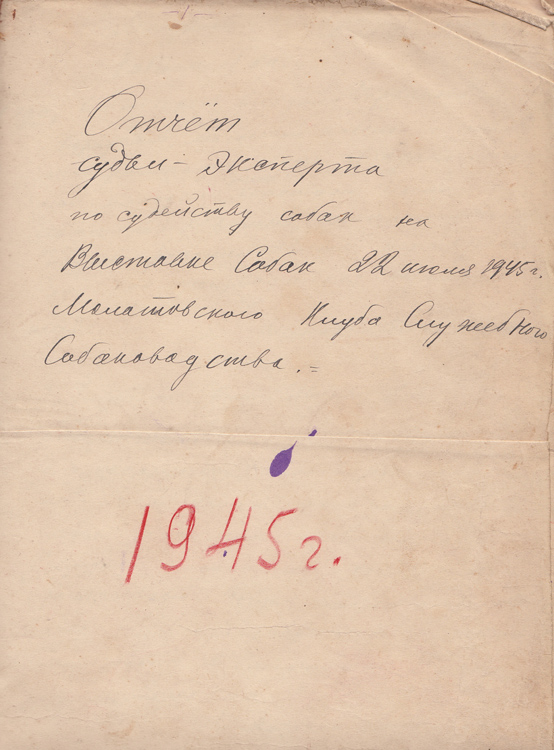 Отчёт
судьи - эксперта
по судейству собак на
Выставке Собак 22 июля 1945 г.
Молотовского Клуба Служебного
Собаководства.=
1945 г.